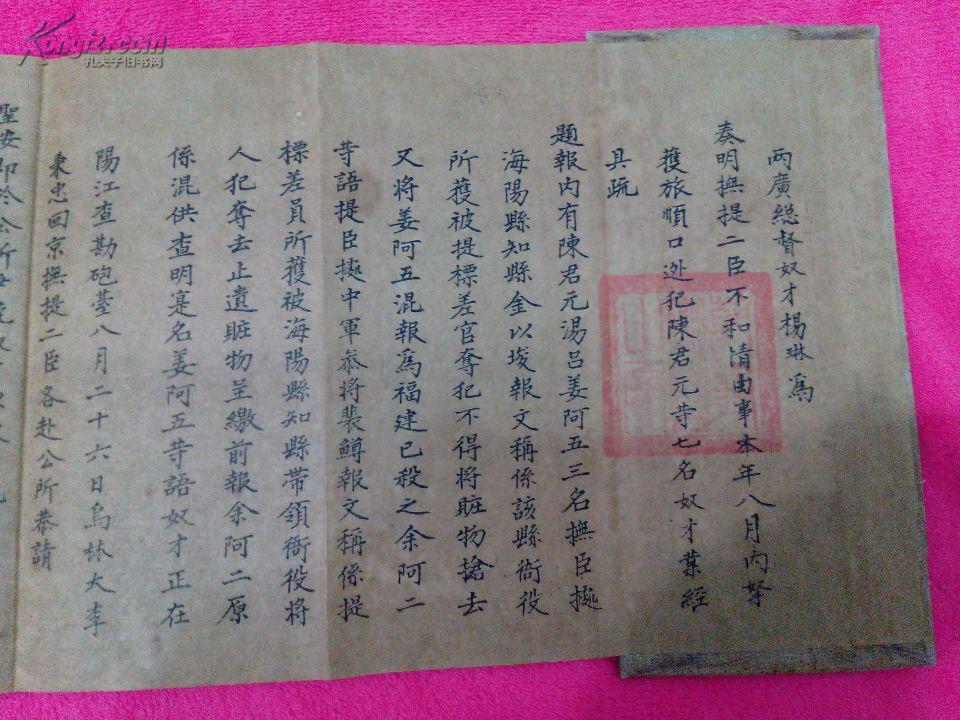 兩廣總督奴才楊琳爲
奏明撫提二臣不和清由事本年八月內拏
獲旅順口逃犯陳君元等七名奴才業經
具疏
題報內有陳君元湯呂姜阿五三名撫臣據
海陽縣知縣金以埈報文稱係該縣衙役
所獲被提標差官奪犯不得將賍物搶去
又將姜阿五混報爲福建已殺之余阿二
等語提臣據中軍叅將裴鱄報文稱係提
標差員所獲被海陽縣知縣帶領衙役將
人犯奪去止遺賍物呈繳前報余阿二原
係混供查明寔名姜阿五等語奴才正在
陽江查勘砲臺八月二十六日烏林大李
秉忠回京撫提二臣各赴公所恭請
聖安即於公所
Kongfz.com
孔夫子旧书网